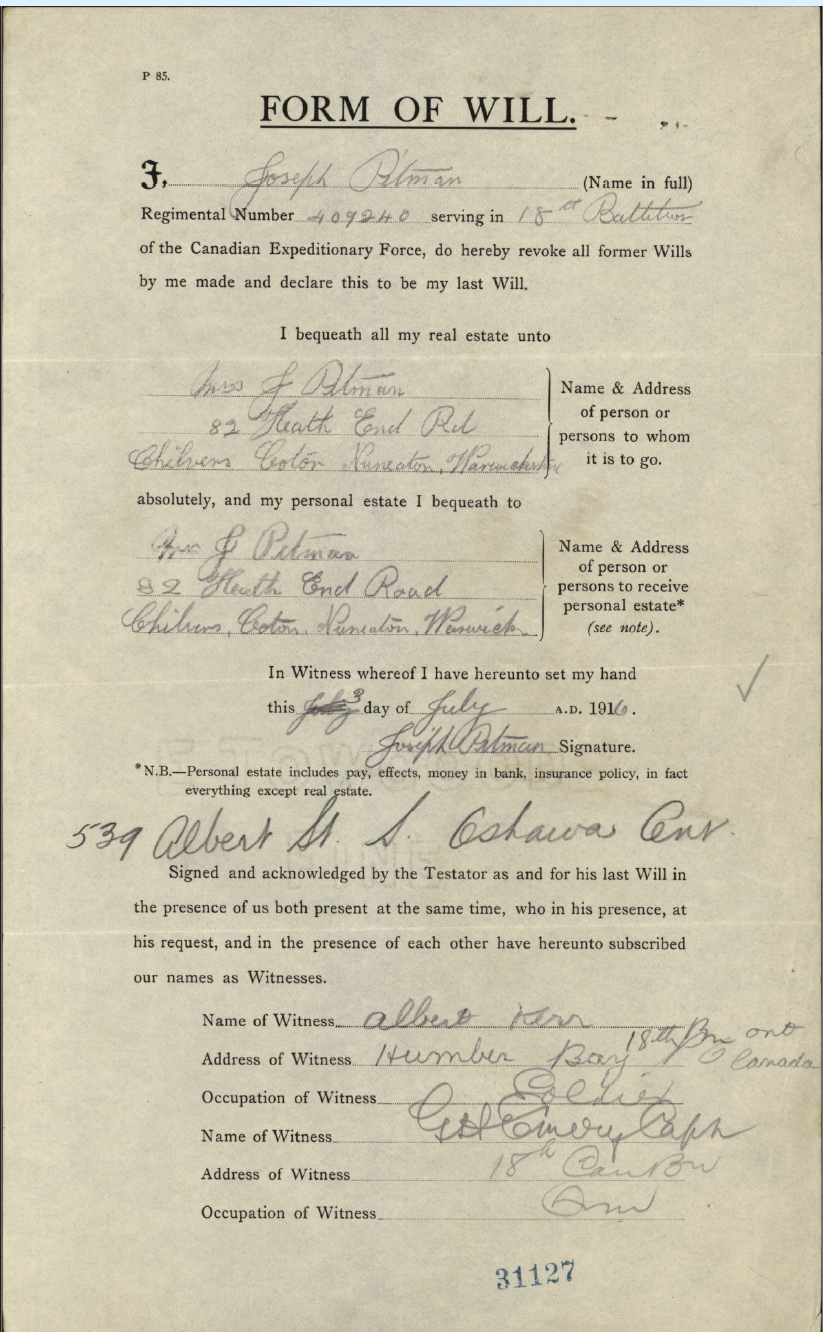 P 85.
FORM OF WILL.
I, Joseph Pitman (Name in full)
Regimental Number 409240 serving in 18th Battalion
of the Canadian Expeditionary Force, do hereby revoke all former Wills
by me made and declare this to be my last Will.
I bequeath all my real estate unto
Mrs J Pitman
82 Heath End Rd
Chilvers Coton Nuneaton, Warwickshire
Name & Address
of person or
persons to whom
it is to go.
absolutely, and my personal estate I bequeath to
Mrs J Pitman
82 Heath End Road
Chilvers, Coton, Nuneaton, Warwick.
Name & Address
of person or
persons to receive
personal estate*
(see note).
In Witness whereof I have hereunto set my hand
this 3 day of July A.D. 1916.
Joseph Pitman Signature.
*N.B.—Personal estate includes pay, effects, money in bank, insurance policy, in fact
everything except real estate.
539 Albert St. S. Oshawa Ont.
Signed and acknowledged by the Testator as and for his last Will in
the presence of us both present at the same time, who in his presence, at
his request, and in the presence of each other have hereunto subscribed
our names as Witnesses.
Name of Witness Albert Kerr
18th Bn Ont
Address of Witness Humber Bay Canada
Occupation of Witness Soldier
Name of Witness Emery Capt
Address of Witness 18th Can Bn
Occupation of Witness
31127